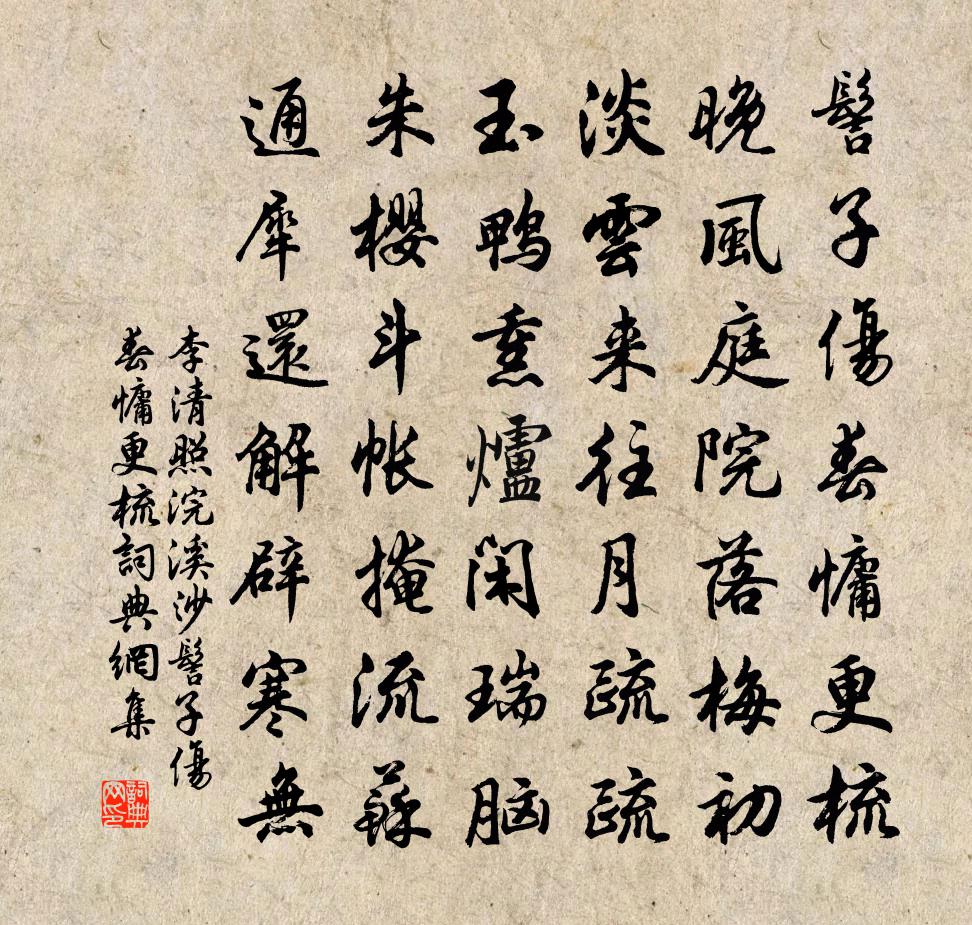 髻子傷春慵更梳
晚風庭院落梅初
淡雲来往月疏疏
玉鴨熏爐閑瑞脑
朱櫻斗帐掩流蘇
通犀還解辟寒無
李清照浣溪沙髻子傷
春慵更梳詞典網集
詞典
网印